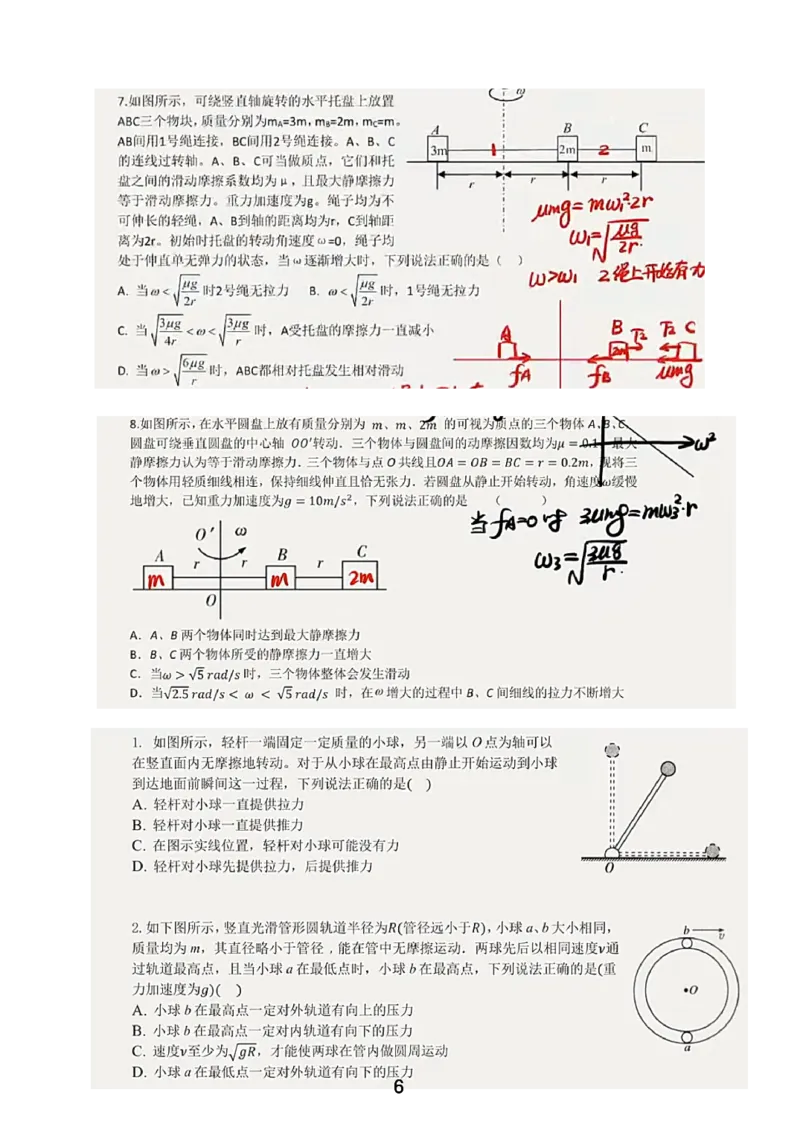 7.如图所示，可绕竖直轴旋转的水平托盘上放置
ABC三个物块，质量分别为mA=3m，mB=2m，mC=m。
AB间用1号绳连接，BC间用2号绳连接。A、B、C
的连线过转轴。A、B、C可当做质点，它们和托
盘之间的滑动摩擦系数均为μ，且最大静摩擦力
等于滑动摩擦力。重力加速度为g。绳子均为不
可伸长的轻绳，A、B到轴的距离均为r，C到轴距
离为2r。初始时托盘的转动角速度ω=0，绳子均
处于伸直单无弹力的状态，当ω逐渐增大时，下列说法正确的是（ ）
A. 当ω<√(μg/2r)时2号绳无拉力 B. ω<√(μg/2r)时，1号绳无拉力
C. 当√(3μg/4r)<ω<√(3μg/r)时，A受托盘的摩擦力一直减小
D. 当ω>√(6μg/r)时，ABC都相对托盘发生相对滑动
ω
A B C
3m 1 2m 2 m
r r r
μmg=mω₁²·2r
ω₁=√(μg/2r).
ω>ω₁ 2绳上开始有力
A B T₂ T₂ C
2m
fA fB μmg
8.如图所示，在水平圆盘上放有质量分别为 m、m、2m 的可视为质点的三个物体 A、B、C，
圆盘可绕垂直圆盘的中心轴 OO′转动．三个物体与圆盘间的动摩擦因数均为μ = 0.1，最大
静摩擦力认为等于滑动摩擦力．三个物体与点 O 共线且OA = OB = BC = r = 0.2m，现将三
个物体用轻质细线相连，保持细线伸直且恰无张力．若圆盘从静止开始转动，角速度ω缓慢
地增大，已知重力加速度为g = 10m/s²，下列说法正确的是 （ ）
ω²
当fA=0时 3μmg=mω₃²·r
ω₃=√(3μg/r).
O′ ω
A r r B r C
m m 2m
O
A．A、B 两个物体同时达到最大静摩擦力
B．B、C 两个物体所受的静摩擦力一直增大
C．当ω > √5 rad/s 时，三个物体整体会发生滑动
D．当√2.5 rad/s < ω < √5 rad/s 时，在ω增大的过程中 B、C 间细线的拉力不断增大
1. 如图所示，轻杆一端固定一定质量的小球，另一端以 O 点为轴可以
在竖直面内无摩擦地转动。对于从小球在最高点由静止开始运动到小球
到达地面前瞬间这一过程，下列说法正确的是( )
A. 轻杆对小球一直提供拉力
B. 轻杆对小球一直提供推力
C. 在图示实线位置，轻杆对小球可能没有力
D. 轻杆对小球先提供拉力，后提供推力
O
2. 如下图所示，竖直光滑管形圆轨道半径为R(管径远小于R)，小球 a、b 大小相同，
质量均为 m，其直径略小于管径，能在管中无摩擦运动．两球先后以相同速度v通
过轨道最高点，且当小球 a 在最低点时，小球 b 在最高点，下列说法正确的是(重
力加速度为g)( )
A. 小球 b 在最高点一定对外轨道有向上的压力
B. 小球 b 在最高点一定对内轨道有向下的压力
C. 速度v至少为√gR，才能使两球在管内做圆周运动
D. 小球 a 在最低点一定对外轨道有向下的压力
b v
O
a
6